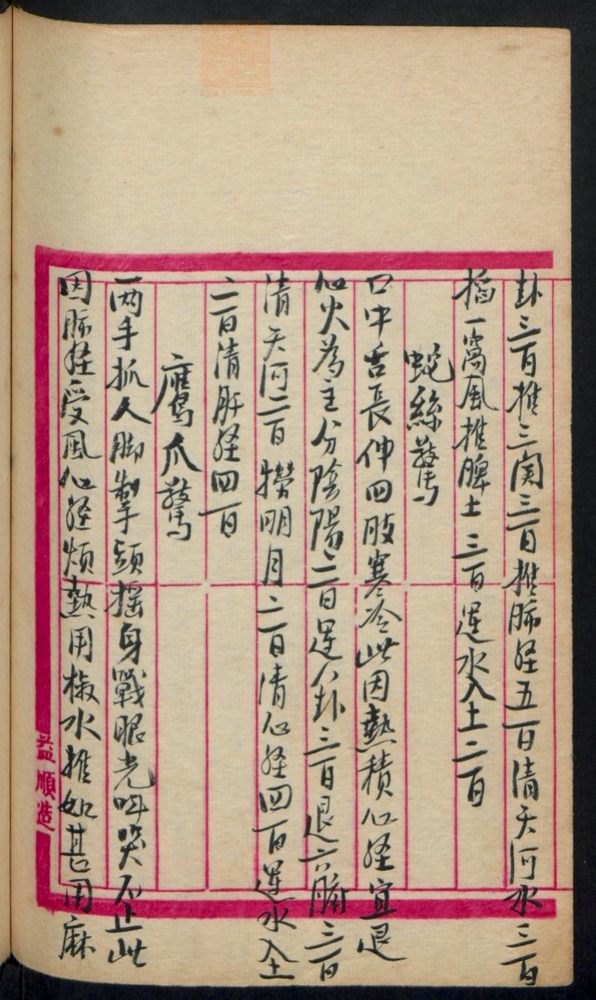 卦三百推三関三百推肺经五百清天河水三百
掐一窩風推脾土三百運水入土二百
蛇絲驚
口中舌長伸四肢寒冷此因熱積心経宜退
心火為主分陰陽二百運八卦三百退六腑三百
清天河二百撈明月二百清心経四百運水入土
二百清肝経四百
鷹爪驚
两手抓人脚掣頭揺身戰眼光呌哭不止此
因肺経受風心経煩熱用椒水推如甚用麻
益順造